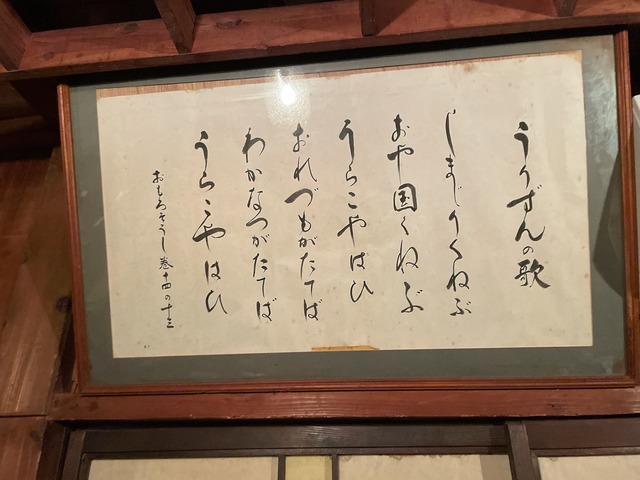 うりずんの歌
しまじりくねぶ
おや国くねぶ
うらこやはひ
おれづもがたてば
わかなつがたてば
うらこやはひ
おもろそうし巻十四の十三